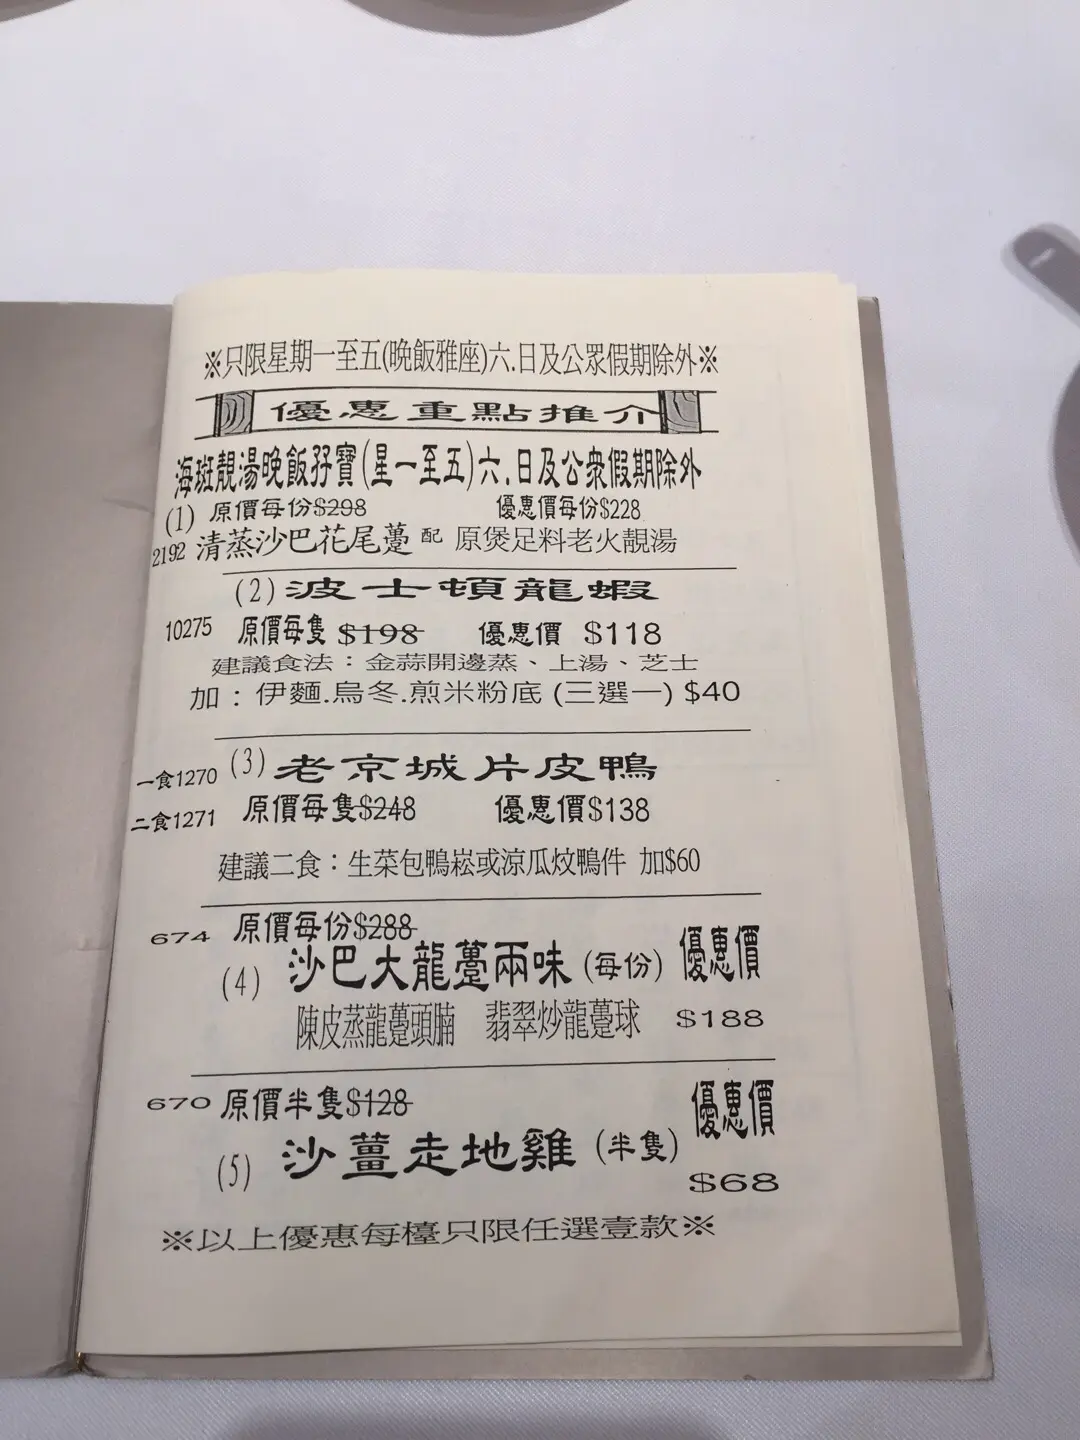 ※只限星期一至五(晚飯雅座)六.日及公眾假期除外※
優惠重點推介
海斑靚湯晚飯孖寶(星一至五)六.日及公衆假期除外
(1) 原價每份$298 優惠價每份$228
2192 清蒸沙巴花尾躉 配 原煲足料老火靚湯
(2) 波士頓龍蝦
10275 原價每隻 $198 優惠價 $118
建議食法：金蒜開邊蒸、上湯、芝士
加：伊麵.烏冬.煎米粉底 (三選一) $40
一食1270 (3) 老京城片皮鴨
二食1271 原價每隻$248 優惠價$138
建議二食：生菜包鴨崧或涼瓜炆鴨件 加$60
674 原價每份$288
(4) 沙巴大龍躉兩味 (每份) 優惠價
陳皮蒸龍躉頭腩 翡翠炒龍躉球 $188
670 原價半隻$128 優惠價
(5) 沙薑走地雞 (半隻)
$68
※以上優惠每檯只限任選壹款※